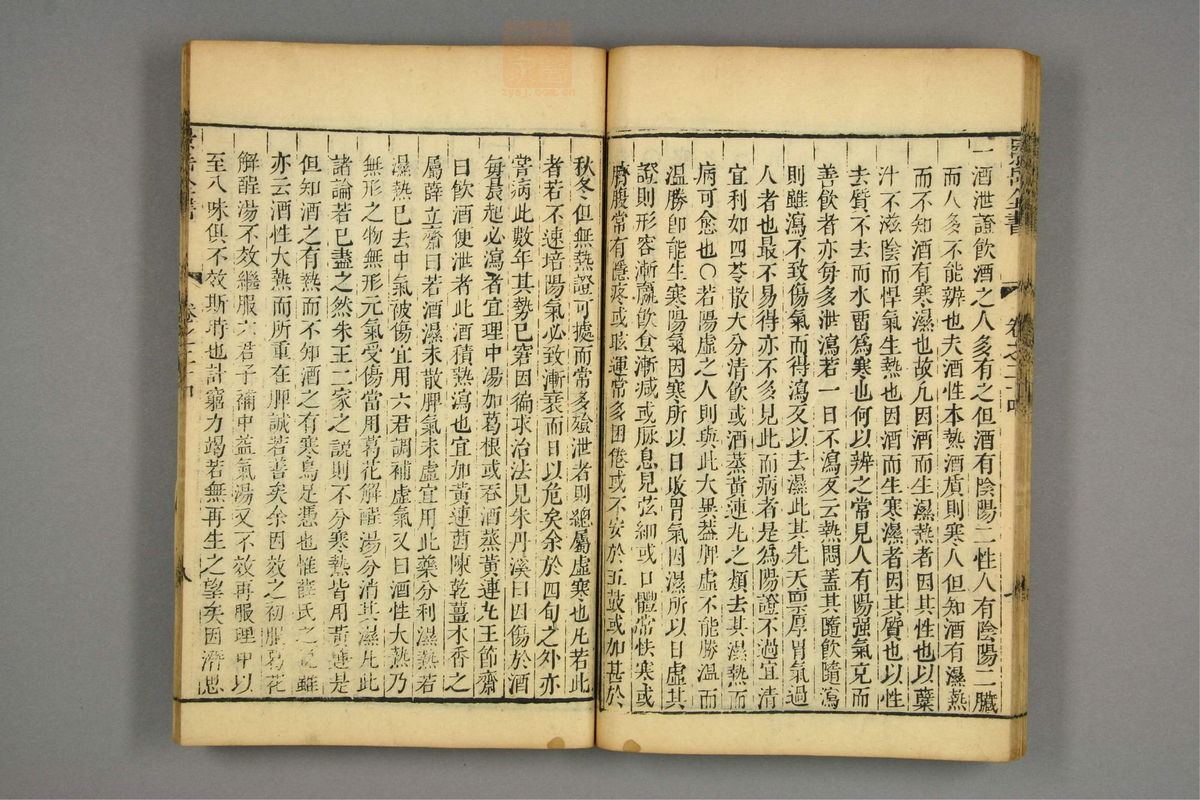 景岳全書 卷之二十四
一酒泄證飲酒之人多有之但酒有陰陽二性人有陰陽二臟
而人多不能辨也夫酒性本熱酒質則寒人但知酒有濕熱
而不知酒有寒濕也故凡因酒而生濕熱者因其性也以蘖
汁不滋陰而悍氣生熱也因酒而生寒濕者因其質也以性
去質不去而水留爲寒也何以辨之常見人有陽强氣充而
善飲者亦每多泄瀉若一日不瀉反云熱悶蓋其隨飲隨瀉
則雖瀉不致傷氣而得瀉反以去濕此其先天稟厚胃氣過
人者也最不易得亦不多見此而病者是爲陽證不過宜清
宜利如四苓散大分清飲或酒蒸黄連丸之類去其濕熱而
病可愈也○若陽虚之人則與此大異蓋脾虚不能勝濕而
濕勝卽能生寒陽氣因寒所以日敗胃氣因濕所以日虚其
證則形容漸羸飲食漸减或脉息見弦細或口體常怯寒或
臍腹常有隱疼或眩運常多困倦或不安於五鼓或加甚於
秋冬但無熱證可據而常多飱泄者則總屬虚寒也凡若此
者若不速培陽氣必致漸衰而日以危矣余於四旬之外亦
嘗病此數年其勢已窘因徧求治法見朱丹溪曰因傷於酒
每晨起必瀉者宜理中湯加葛根或吞酒蒸黄連丸王節齋
曰飲酒便泄者此酒積熱瀉也宜加黄連茵陳乾薑木香之
屬薛立齋曰若酒濕未散脾氣未虚宜用此藥分利濕熱若
濕熱已去中氣被傷宜用六君調補虚氣又曰酒性大熱乃
無形之物無形元氣受傷當用葛花解酲湯分消其濕凡此
諸論若已盡之然朱王二家之説則不分寒熱皆用黄連是
但知酒之有熱而不知酒之有寒烏足憑也惟薛氏之説雖
亦云酒性大熱而所重在脾誠若善矣余因效之初服葛花
解酲湯不效繼服六君子補中益氣湯又不效再服理中以
至八味俱不效斯時也計窮力竭若無再生之望矣因潛思